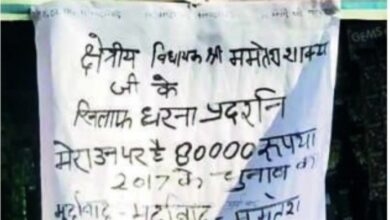 क्षेत्रीय विधायक श्री ममतेश शाक्य
जी के
खिलाफ धरना प्रदर्शन
मेरा उन पर है 80000 रूपया
2017 के चुनाव का
मुर्दाबाद - मुर्दाबाद ममतेश
GEMS